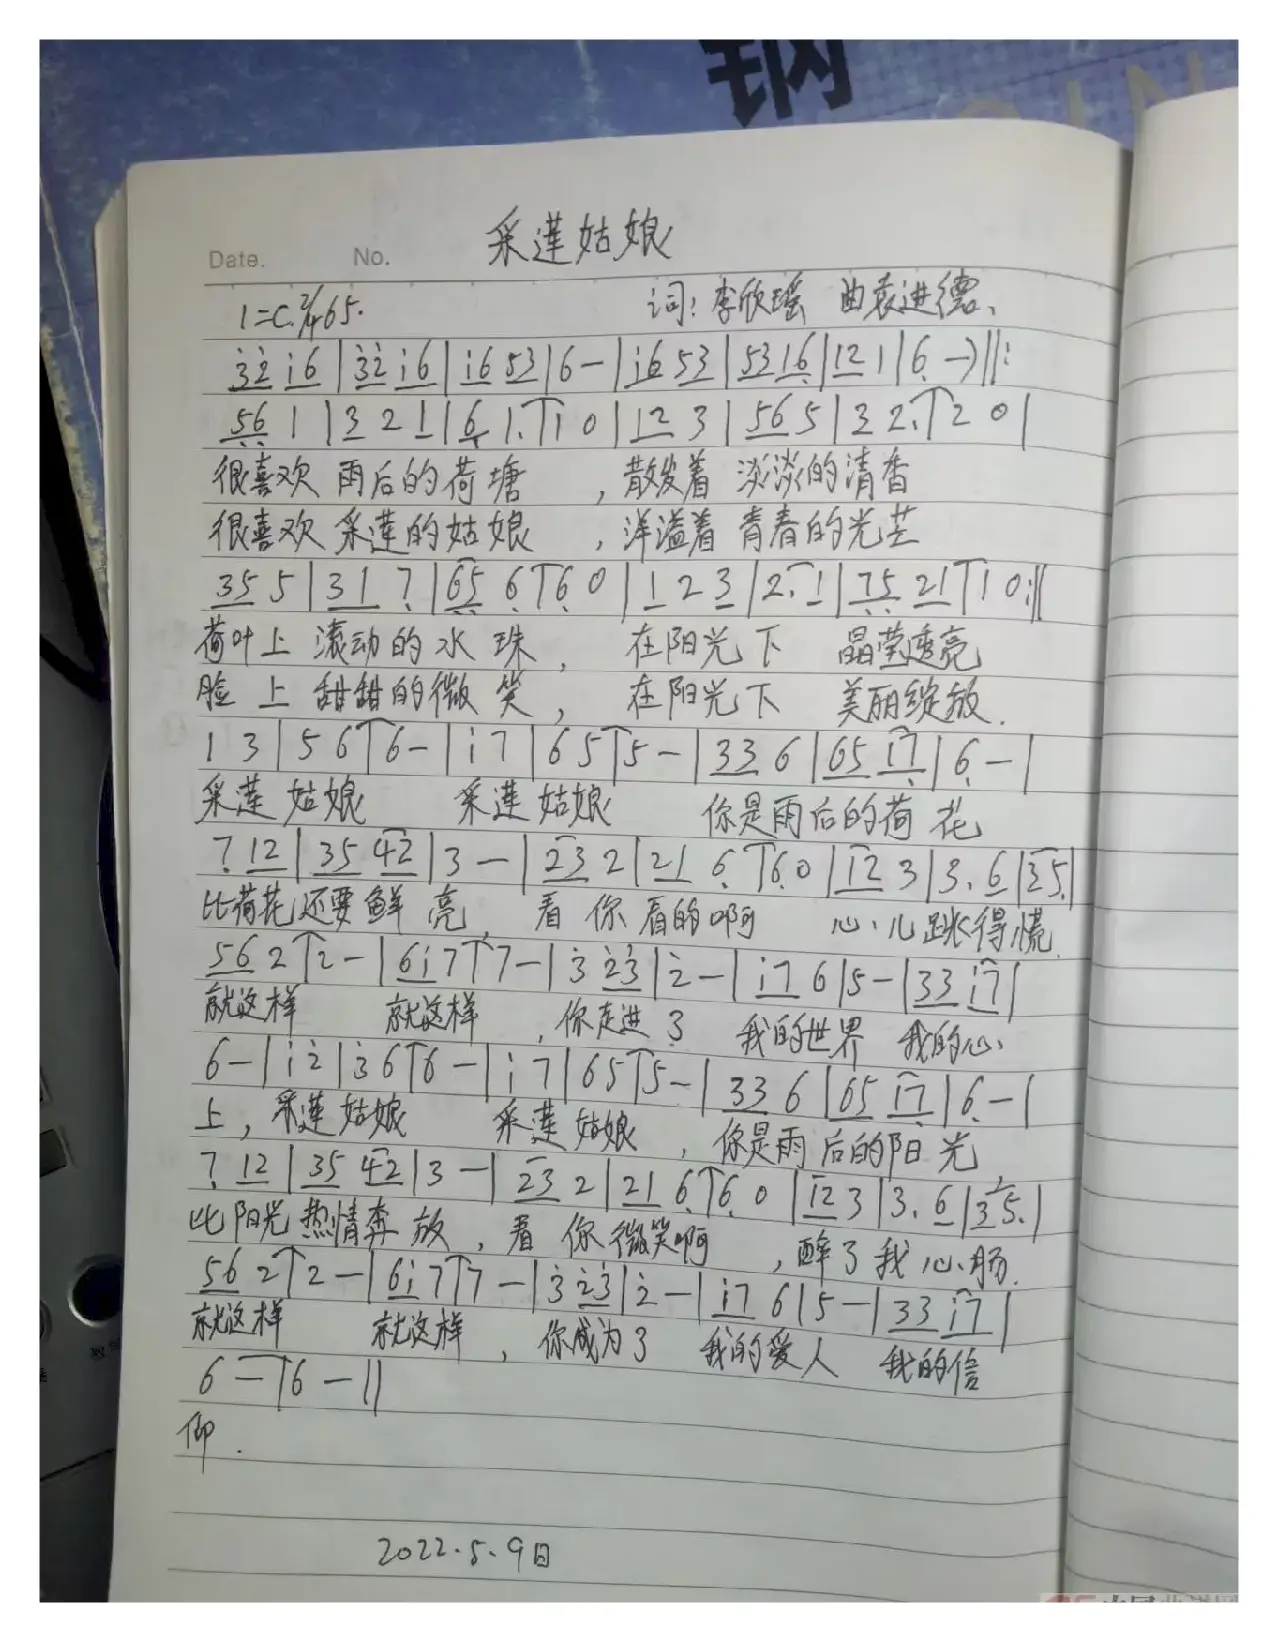 钢
Date. No. 采莲姑娘
1=C 2/4 65. 词:李欣瑶 曲袁进德、
3̇2̇ i6 | 3̇2̇ i6 | i6 53 | 6 — | i6 53 | 53 16̣ | 12 1 | 6̣ —) ‖:
5̣6̣ 1 | 3 2 1 | 6̣ 1. | 1 0 | 12 3 | 56 5 | 3 2. | 2 0 |
很喜欢 雨后的荷塘 ,散发着 淡淡的清香
很喜欢 采莲的姑娘 ,洋溢着 青春的光芒
35 5 | 31 7̣ | 6̣5̣ 6̣ | 6̣ 0 | 1 2 3 | 2. 1 | 7̣5̣ 21 | 1 0 :‖
荷叶上 滚动的水 珠, 在阳光下 晶莹透亮
脸 上 甜甜的微 笑, 在阳光下 美丽绽放.
1 3 | 5 6 | 6 — | i 7 | 6 5 | 5 — | 33 6 | 65 17̣ | 6̣ — |
采莲姑娘 采莲姑娘 你是雨后的荷 花
7̣ 12 | 35 42 | 3 — | 23 2 | 21 6̣ | 6̣ 0 | 12 3 | 3. 6 | 35. |
比荷花还要鲜 亮, 看 你看的啊 心儿跳得慌.
56 2̇ | 2̇ — | 6i 7 | 7 — | 3̇ 2̇3̇ | 2̇ — | i7 6 | 5 — | 33 i7 |
就这样 就这样 ,你走进了 我的世界 我的心
6 — | i 2̇ | 3̇ 6 | 6 — | i 7 | 65 | 5 — | 33 6 | 65 17̣ | 6̣ — |
上, 采莲姑娘 采莲姑娘 ,你是雨后的阳 光
7̣ 12 | 35 42 | 3 — | 23 2 | 21 6̣ | 6̣ 0 | 12 3 | 3. 6 | 35. |
比阳光热情奔 放, 看 你微笑啊 ,醉了我心肠.
56 2 | 2 — | 6i 7 | 7 — | 3̇ 2̇3̇ | 2̇ — | i7 6 | 5 — | 33 i7 |
就这样 就这样, 你成为了 我的爱人 我的信
6 — | 6 — ‖
仰.
2022.5.9日